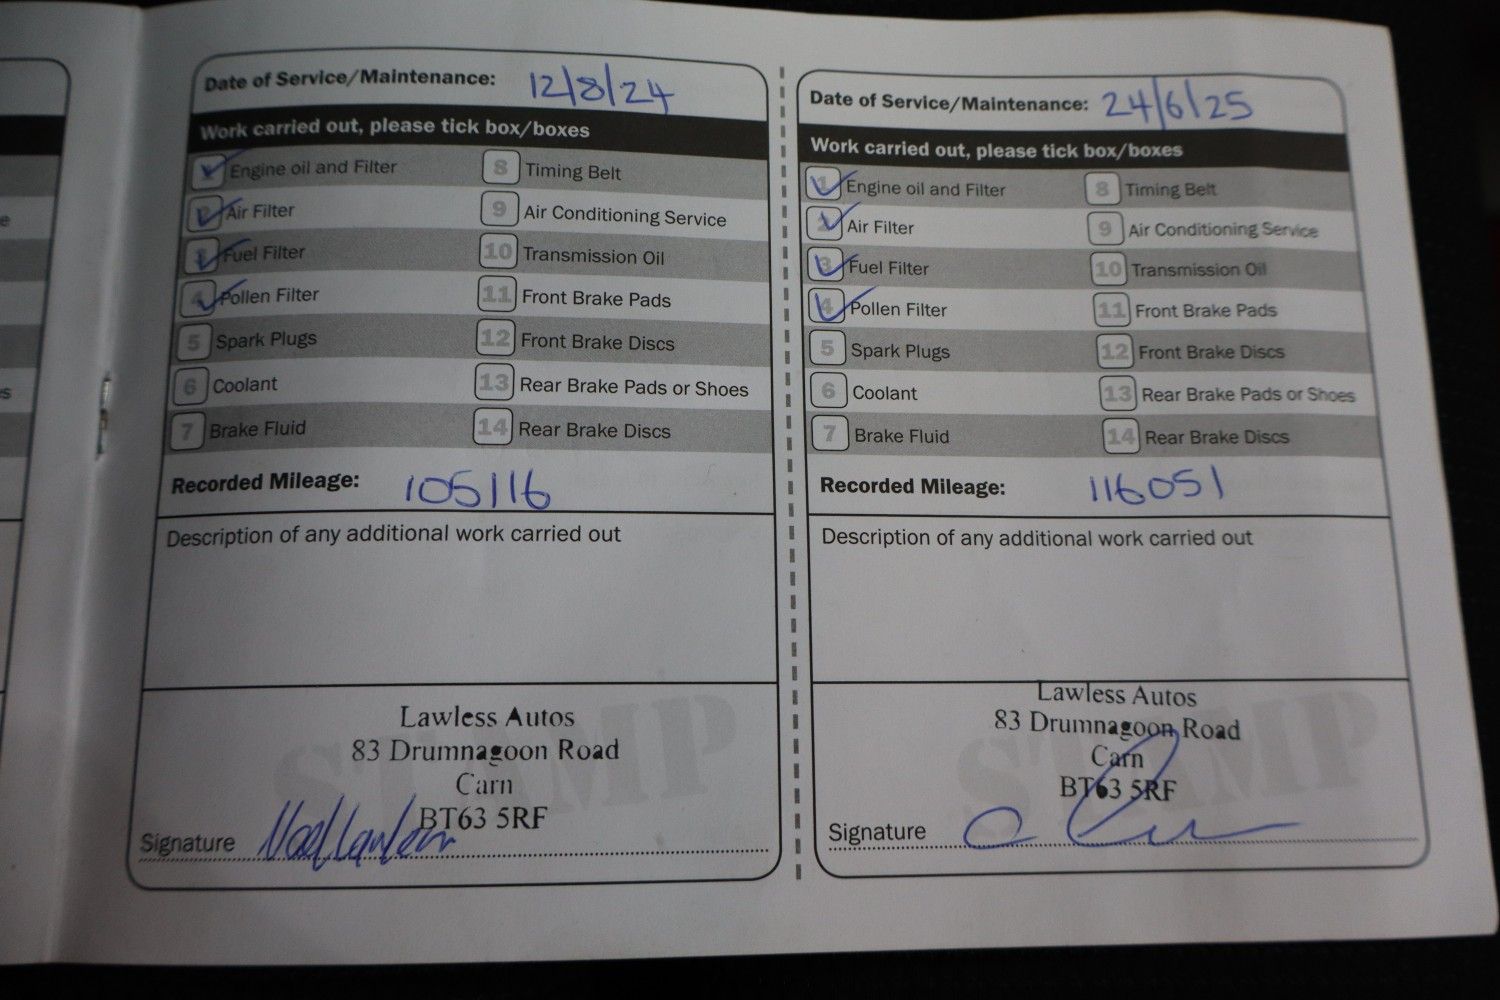 Date of Service/Maintenance: 12/8/24
Work carried out, please tick box/boxes
Engine oil and Filter
2 Air Filter
Fuel Filter
4 Pollen Filter
5 Spark Plugs
6 Coolant
7 Brake Fluid
8 Timing Belt
9 Air Conditioning Service
10 Transmission Oil
11 Front Brake Pads
12 Front Brake Discs
13 Rear Brake Pads or Shoes
14 Rear Brake Discs
Recorded Mileage: 105116
Description of any additional work carried out
STAMP
Lawless Autos
83 Drumnagoon Road
Carn
BT63 5RF
Signature
Date of Service/Maintenance: 24/6/25
Work carried out, please tick box/boxes
1 Engine oil and Filter
2 Air Filter
3 Fuel Filter
4 Pollen Filter
5 Spark Plugs
6 Coolant
7 Brake Fluid
8 Timing Belt
9 Air Conditioning Service
10 Transmission Oil
11 Front Brake Pads
12 Front Brake Discs
13 Rear Brake Pads or Shoes
14 Rear Brake Discs
Recorded Mileage: 116051
Description of any additional work carried out
STAMP
Lawless Autos
83 Drumnagoon Road
Carn
BT63 5RF
Signature